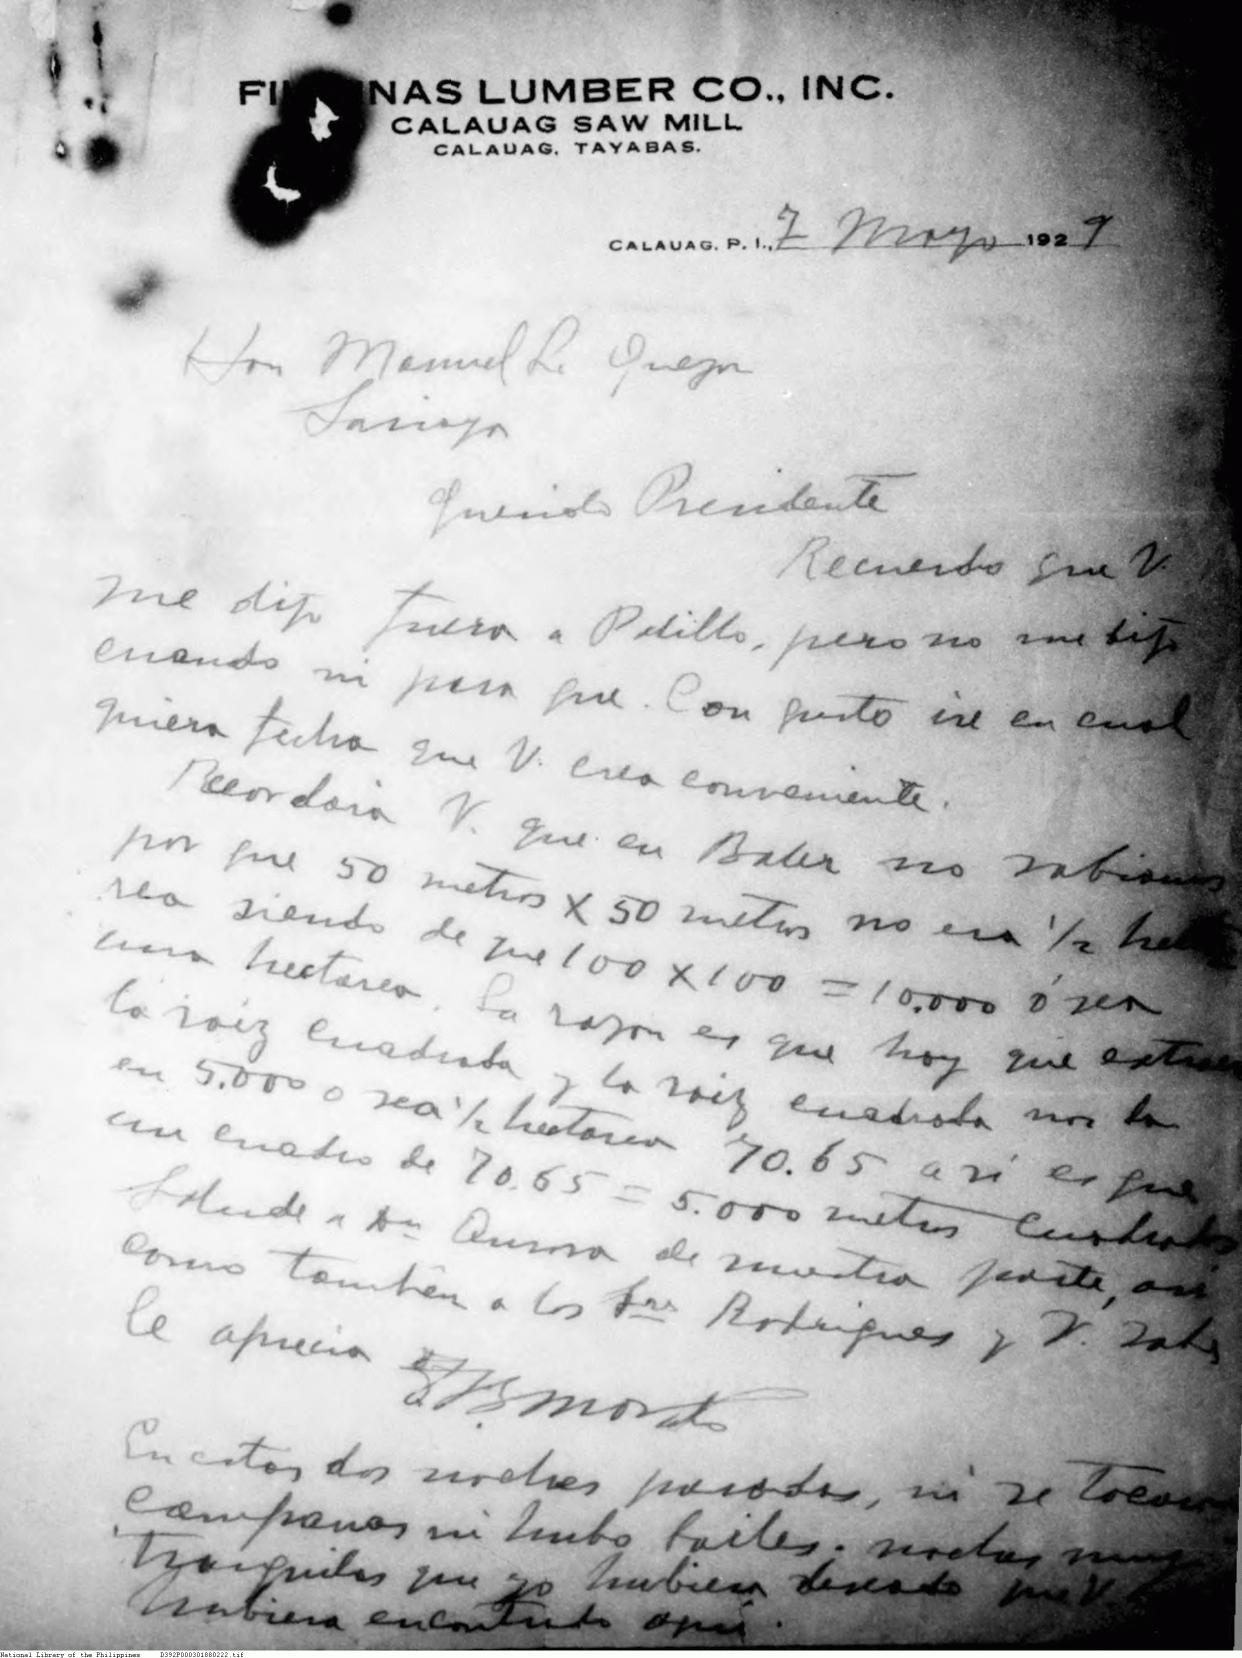 FILIPINAS LUMBER CO., INC.
CALAUAG SAW MILL
CALAUAG, TAYABAS.
CALAUAG, P. I., 7 Mayo 1929
Hon Manuel L. Quezon
Sariaya
Querido Presidente
Recuerdo que V.
me dijo fuera a Polillo, pero no me dijo
cuando ni para que. Con gusto ire en cual
quiera fecha que V. crea conveniente.
Recordara V. que en Baler no sabiamos
por que 50 metros X 50 metros no era 1/2 hecta
rea siendo de que 100 X 100 = 10,000 ó sea
una hectarea. La razon es que hay que extraer
la raiz cuadrada y la raiz cuadrada nos da
en 5.000 o sea 1/2 hectarea 70.65 asi es que
un cuadro de 70.65 = 5.000 metros cuadrados
Salude a Dña Aurora de nuestra parte, asi
como tambien a los Sres Rodriguez y V. sabe
le aprecia
Morato
En estas dos noches pasadas, ni se tocaron
campanas ni hubo bailes. noches muy
tranquilas que yo hubiera deseado que V.
hubiera encontrado aqui.
National Library of the Philippines D392P000301880222.tif